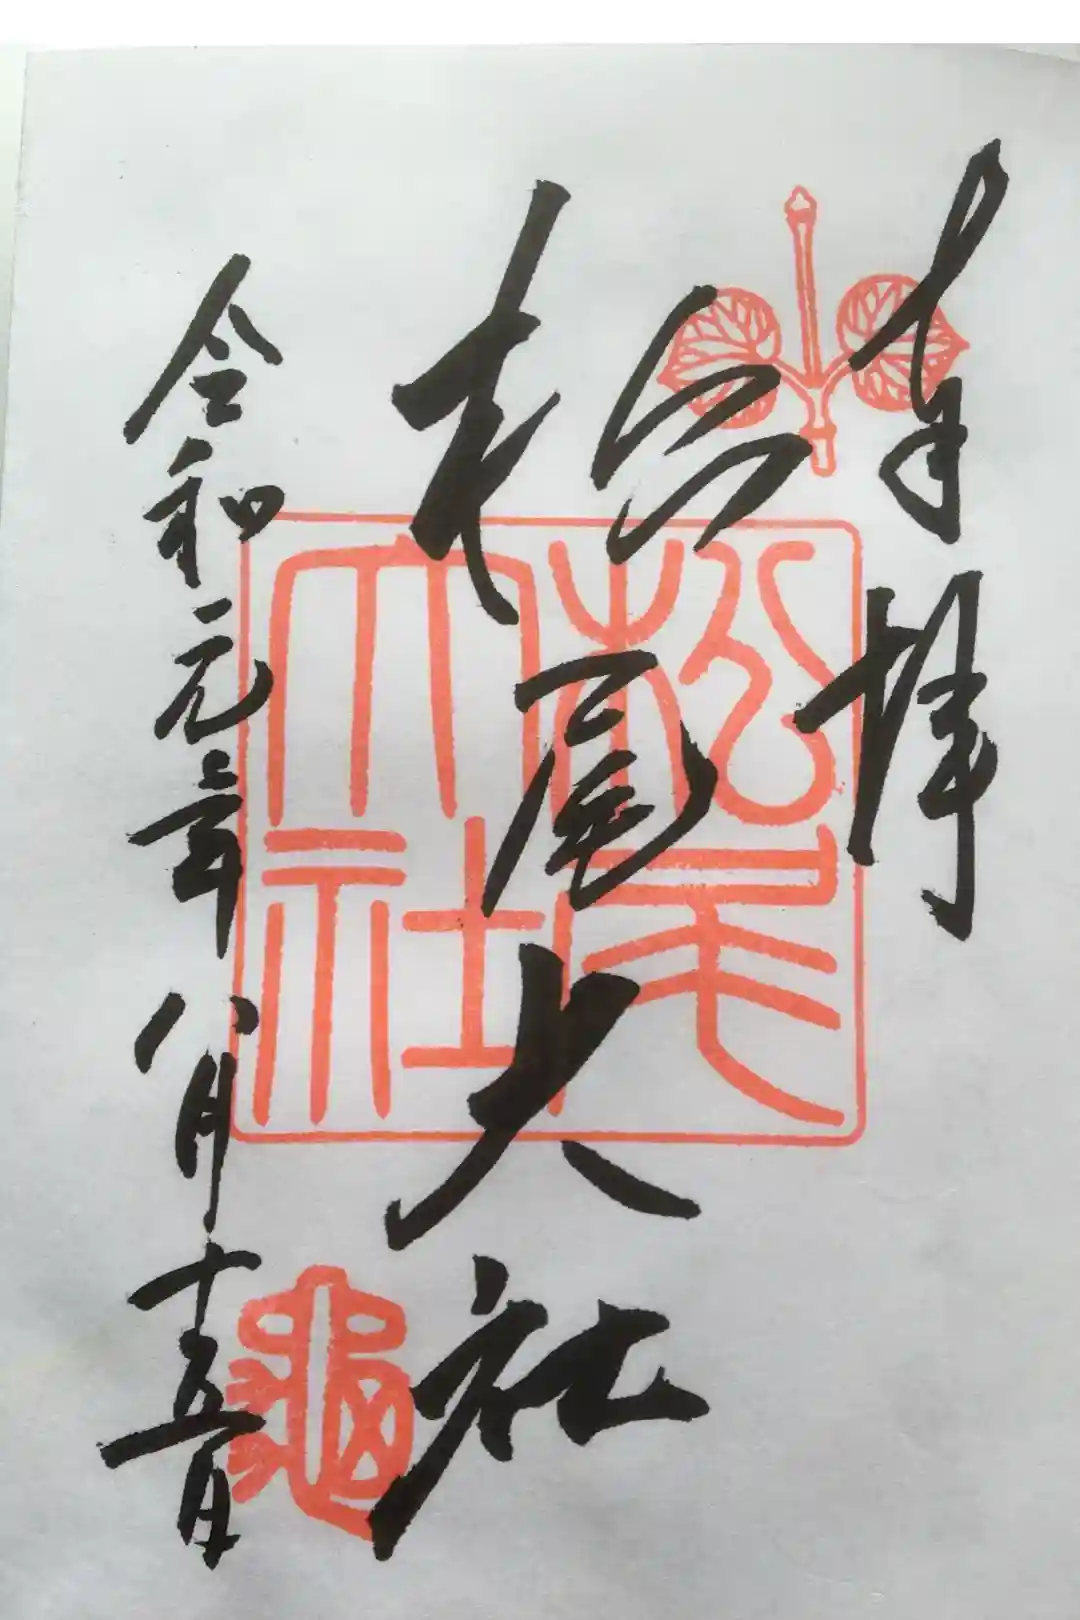 奉拝
松尾大社
令和元年八月十五日
松尾大社
亀